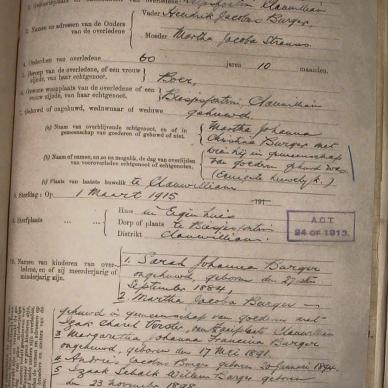 Clanwilliam
3. Namen en adressen van de Ouders van de overledene
Vader Hendrik Jacobus Burger.
Moeder Martha Jacoba
4. Ouderdom van overledene 60 jaren 10 maanden.
5. Beroep van de overledene, of een vrouw zijnde, van haar echtgenoot.
Boer.
6. Gewone woonplaats van de overledene of een vrouw zijnde, van haar echtgenoot.
Clanwilliam
7. Gehuwd of ongehuwd, weduwnaar of weduwe gehuwd
(a) Naam van overblijvende echtgenoot, en of in gemeenschap van goederen of gehuwd of niet.
Martha Johanna
Christina Burger met
wie hij in gemeenschap
van goederen gehuwd was
(eerste huwelijk.)
(b) Naam of namen, en zo mogelijk, de dag van overlijden van vooroverleden echtgenoot of echtgenoten.
(c) Plaats van laatste huwelik te Clanwilliam
8. Sterfdag: Op 1 Maart 1915 191
9. Sterfplaats
Huis in Eigen huis
Dorp of plaats te
Distrikt Clanwilliam.
ACT
24 OF 1913.
10. Namen van kinderen van overledene, en of zij meerderjarig of minderjarig zijn.
1. Sarah Johanna Burger
ongehuwd, geboren den 27ste
September 1884.
2 Martha Jacoba Burger —
gehuwd in gemeenschap van goederen met
Izak Charel Clanwilliam
3 Margaretha Johanna Francina Burger
ongehuwd, geboren den 17 Mei 1891.
4 Andries Jacobus Burger geboren 20 Januari 1894
5 Izaak Schalk Willem Burger geboren
den 23 November 1898